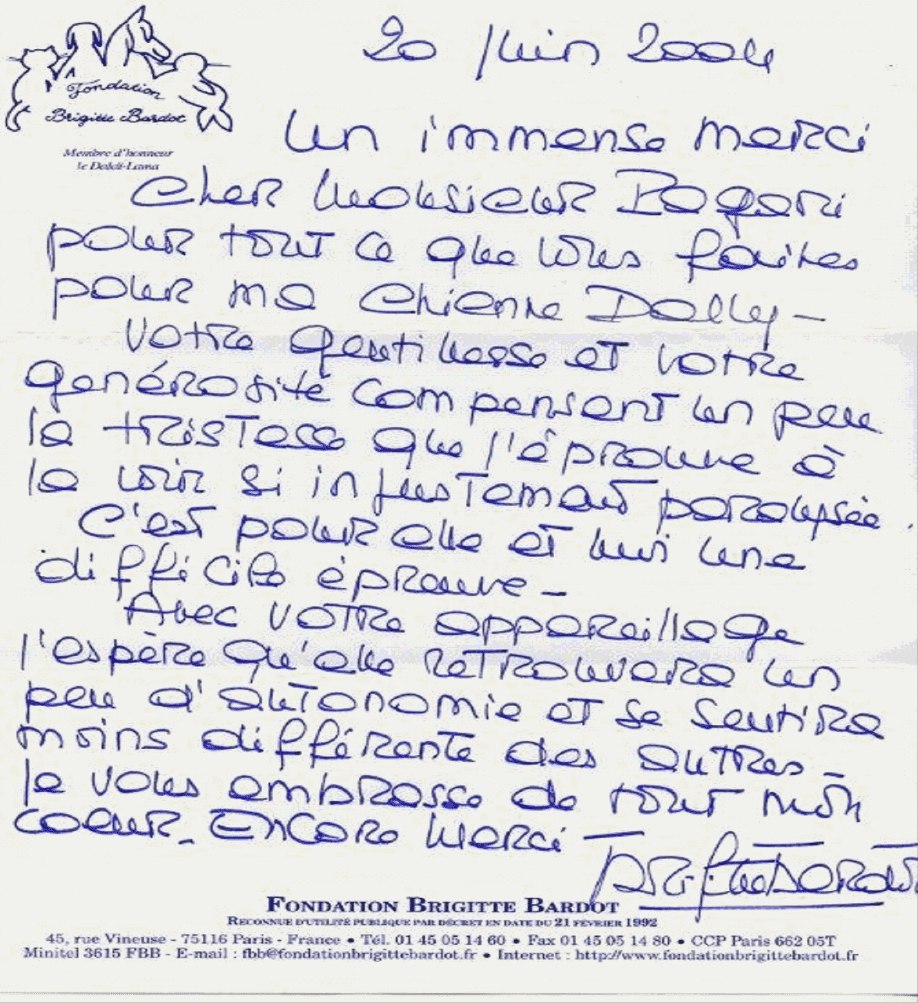 20 Juin 2004
Fondation
Brigitte Bardot
Membre d'honneur
le Dalaï-Lama
Un immense merci
Cher Monsieur Pogori
pour tout ce que vous faites
pour ma chienne Dolly -
Votre gentillesse et votre
générosité compensent un peu
la tristesse que j'éprouve à
la voir si injustement paralysée.
C'est pour elle et moi une
difficile épreuve -
Avec votre appareillage
j'espère qu'elle retrouvera un
peu d'autonomie et se sentira
moins différente des autres -
Je vous embrasse de tout mon
coeur. Encore merci
Brigitte Bardot
FONDATION BRIGITTE BARDOT
RECONNUE D'UTILITÉ PUBLIQUE PAR DÉCRET EN DATE DU 21 FÉVRIER 1992
45, rue Vineuse - 75116 Paris - France • Tél. 01 45 05 14 60 • Fax 01 45 05 14 80 • CCP Paris 662 05T
Minitel 3615 FBB - E-mail : fbb@fondationbrigittebardot.fr • Internet : http://www.fondationbrigittebardot.fr